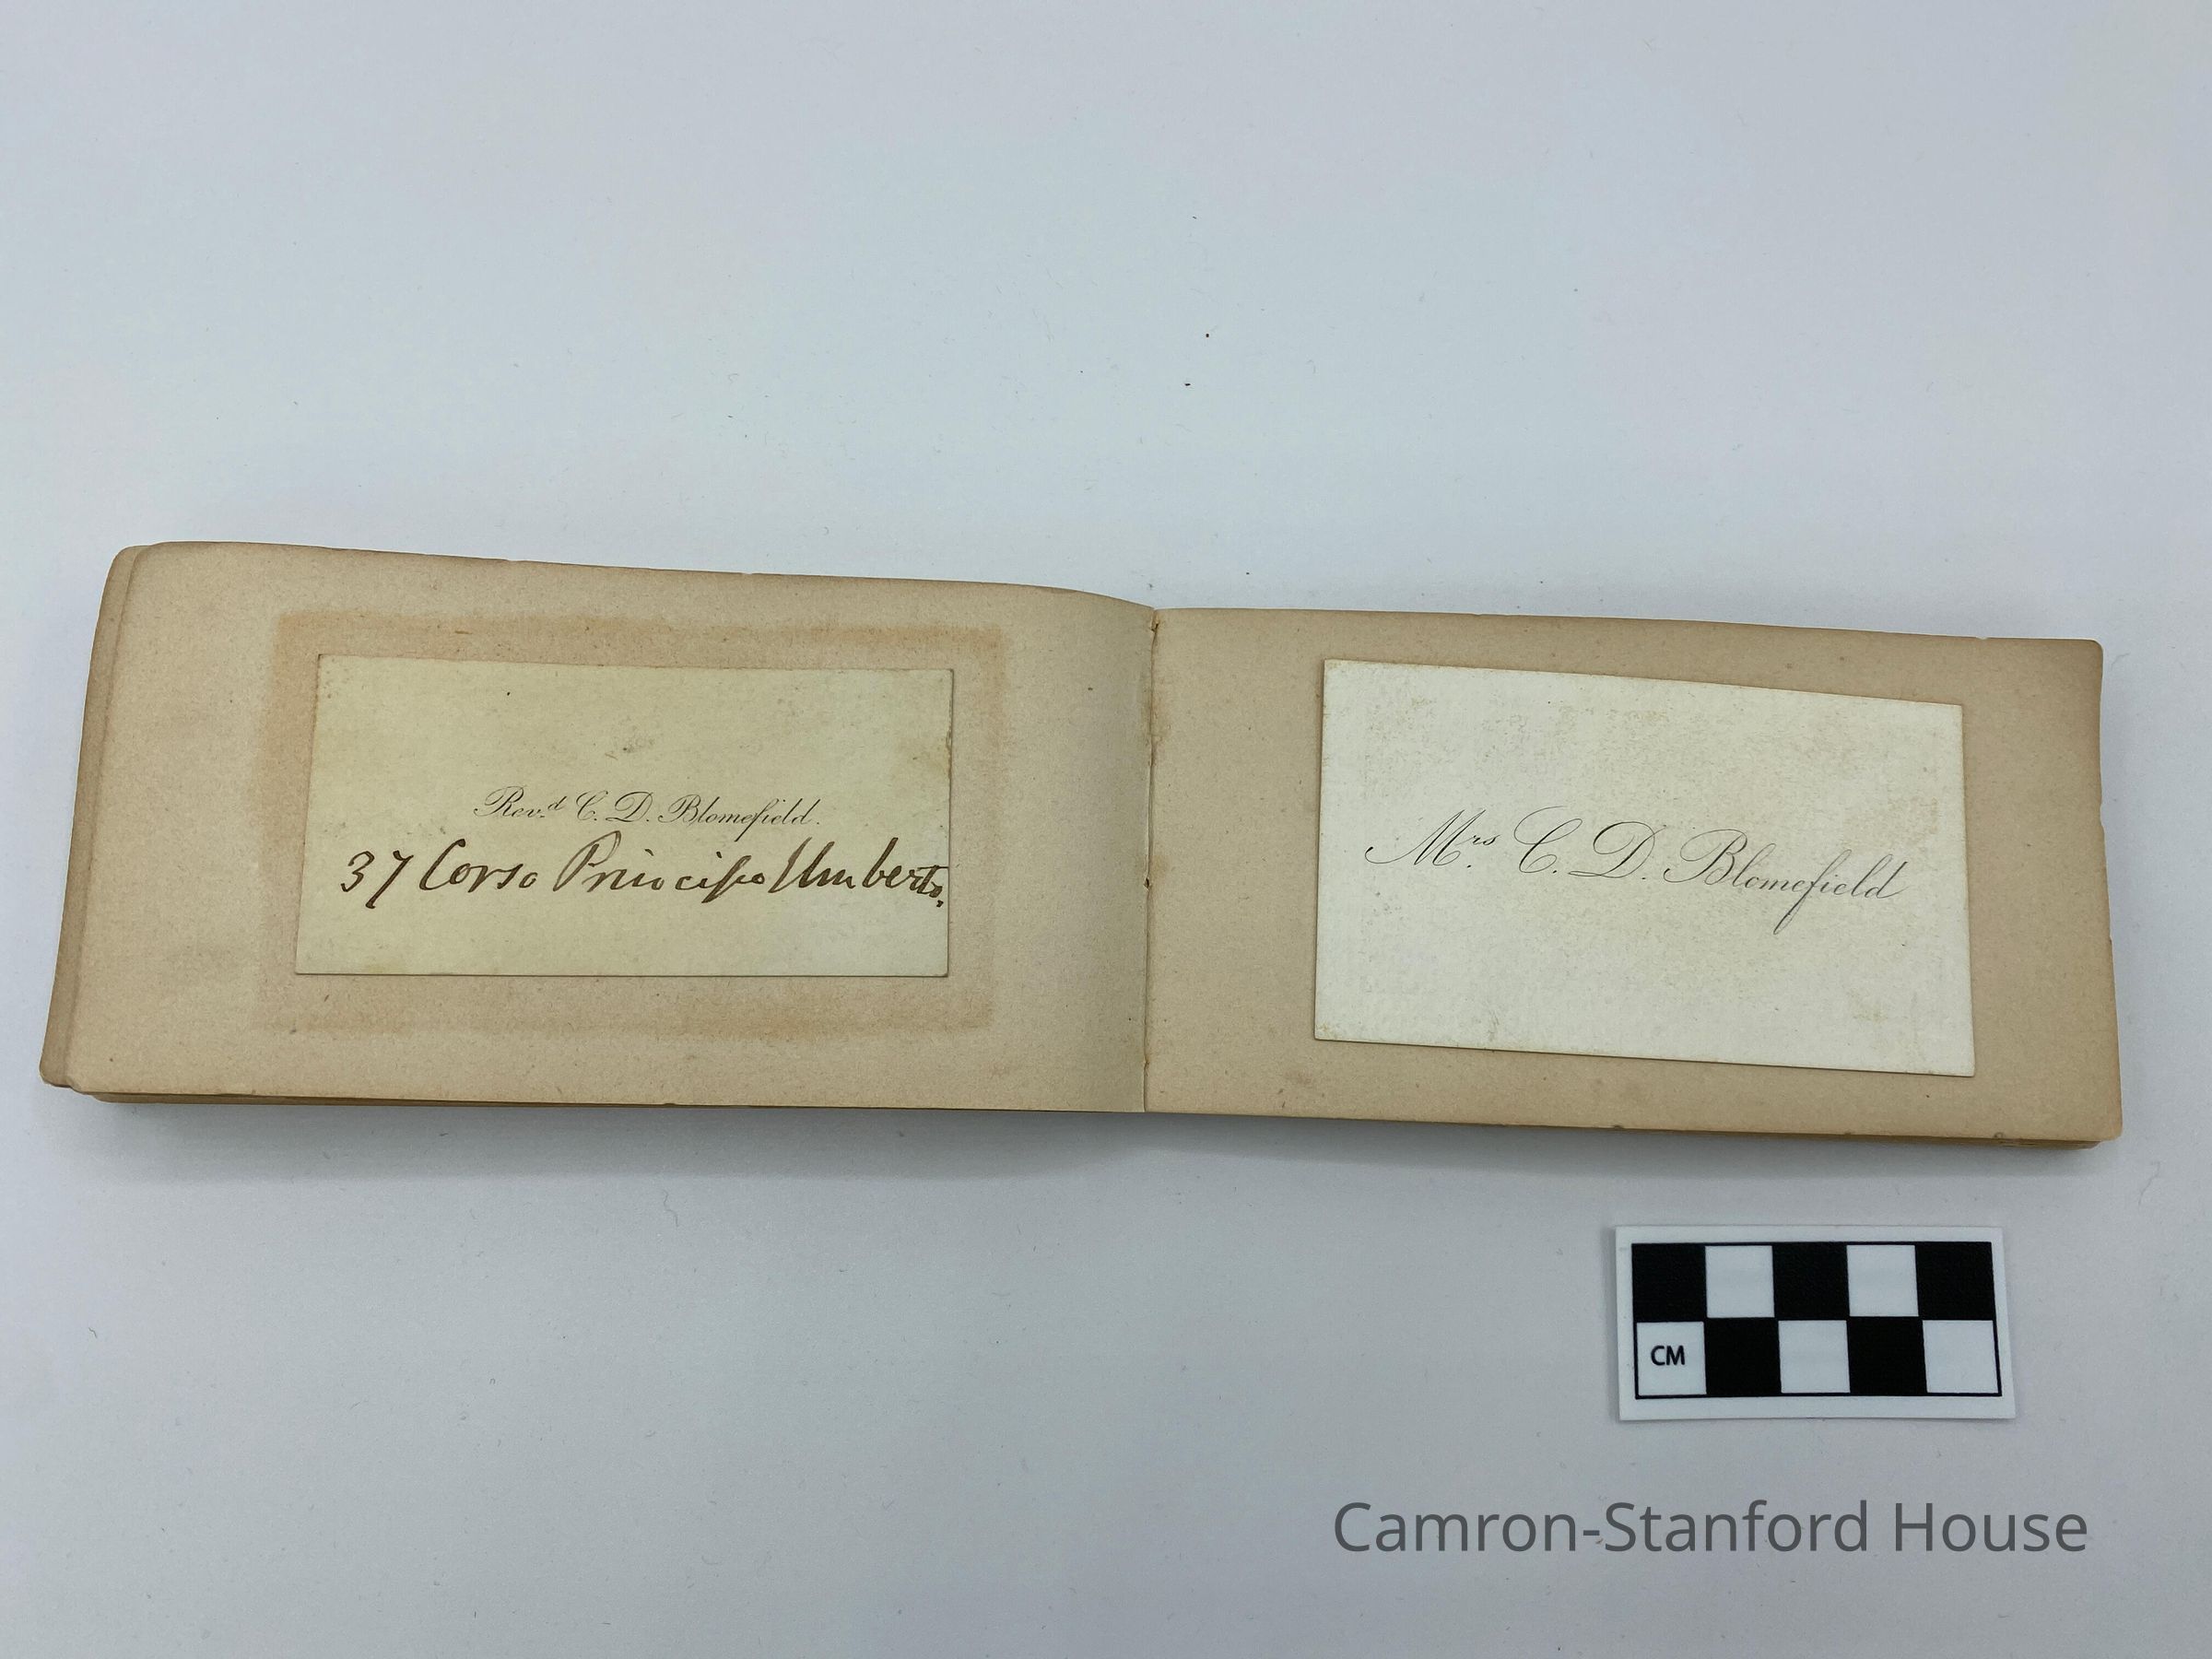 Rev.d C. D. Blomefield.
37 Corso Principo Umberto.
Mrs. C. D. Blomefield
CM
Camron-Stanford House